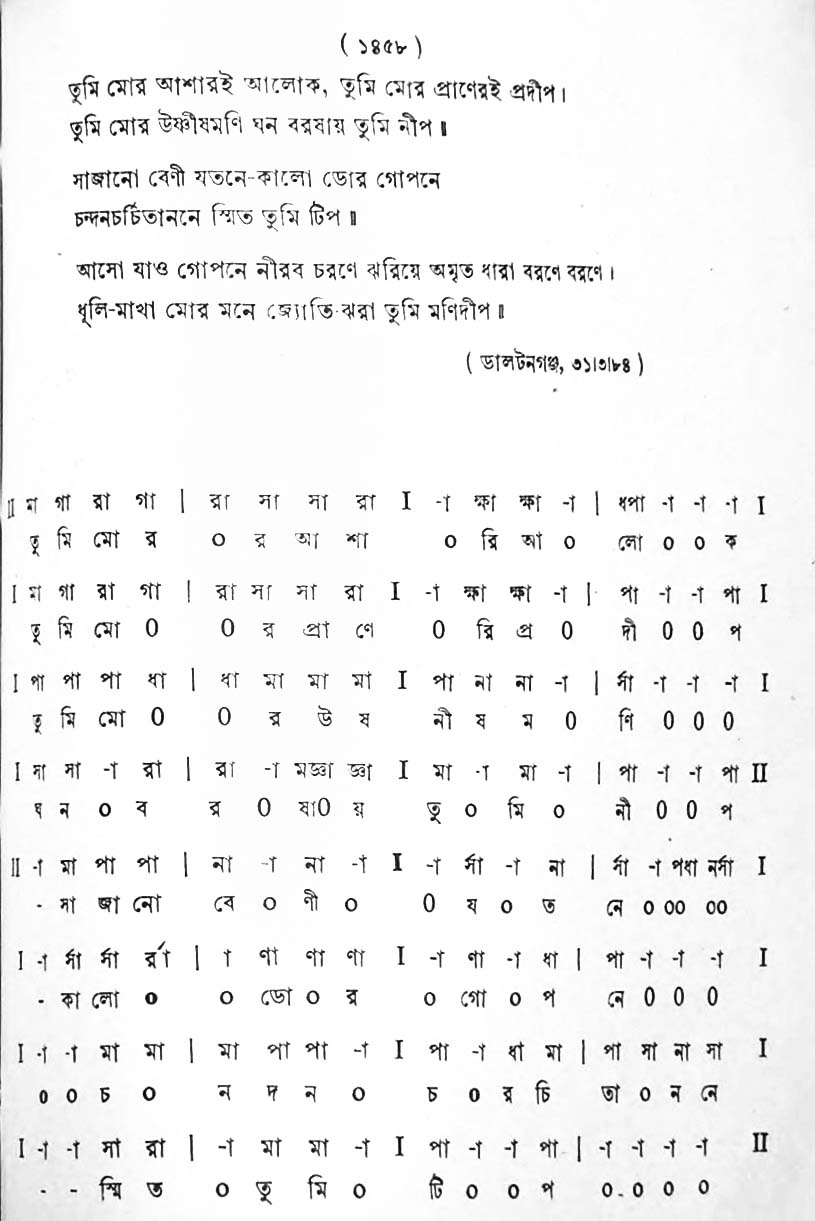 ( ১৪৫৮ )
তুমি মোর আশারই আলোক, তুমি মোর প্রাণেরই প্রদীপ।
তুমি মোর উষ্ণীষমণি ঘন বরষায় তুমি নীপ॥
সাজানো বেণী যতনে-কালো ডোর গোপনে
চন্দনচর্চিতাননে স্মিত তুমি টিপ॥
আসো যাও গোপনে নীরব চরণে ঝরিয়ে অমৃত ধারা বরণে বরণে।
ধূলি-মাখা মোর মনে জ্যোতি-ঝরা তুমি মণিদীপ॥
( ডালটনগঞ্জ, ৩১।৩।৮৪ )
II মা গা রা গা | রা সা সা রা I -া ক্ষা ক্ষা -া | ধপা -া -া -া I
তু মি মো র ০ র আ শা ০ রি আ ০ লো ০ ০ ক
I মা গা রা গা | রা সা সা রা I -া ক্ষা ক্ষা -া | পা -া -া পা I
তু মি মো 0 0 র প্রা ণে 0 রি প্র 0 দী 0 0 প
I পা পা পা ধা | ধা মা মা মা I পা না না -া | র্সা -া -া -া I
তু মি মো 0 0 র উ ষ নী ষ ম 0 ণি 0 0 0
I সা সা -া রা | রা -া মজ্ঞা জ্ঞা I মা -া মা -া | পা -া -া পা II
ঘ ন ০ ব র 0 ষা0 য় তু ০ মি ০ নী 0 0 প
II -া মা পা পা | না -া না -া I -া র্সা -া না | র্সা -া পধা নর্সা I
- সা জা নো বে ০ ণী ০ 0 য ০ ত নে ০ ০০ ০০
I -া র্সা র্সা র্রা | া ণা ণা ণা I -া ণা -া ধা | পা -া -া -া I
- কা লো ০ ০ ডো ০ র ০ গো ০ প নে 0 0 0
I -া -া মা মা | মা পা পা -া I পা -া ধা মা | পা মা না সা I
০ ০ চ ০ ন দ ন ০ চ ০ র চি তা ০ ন নে
I -া -া সা রা | -া মা মা -া I পা -া -া পা | -া -া -া -া II
- - স্মি ত ০ তু মি ০ টি ০ ০ প ০ ০ ০ ০